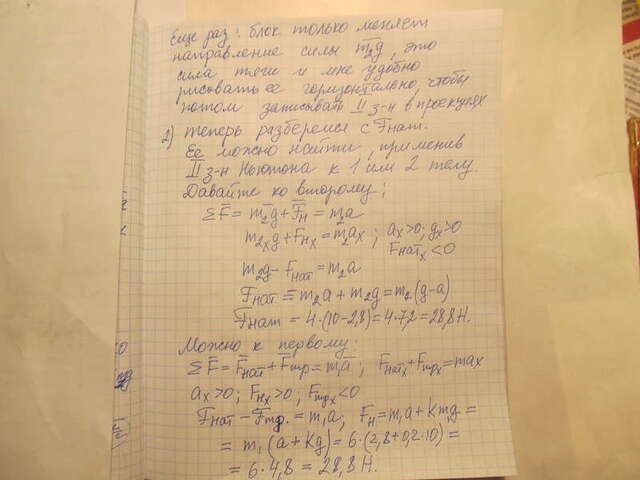 Еще раз: блок только меняет
направление силы m₂g, это
сила тяги и мне удобно
рисовать ее горизонтально, чтобы
потом записывать II з-н в проекциях
2) теперь разберемся с Fнат.
Ее можно найти, применив
II з-н Ньютона к 1 или 2 телу.
Давайте ко второму:
ΣF̅ = m₂g̅ + F̅н = m₂a̅
m₂gₓ + Fнₓ = m₂aₓ ; aₓ>0; gₓ>0
Fнатₓ <0
m₂g - Fнат = m₂a
Fнат = - m₂a + m₂g = m₂(g-a)
Fнат = 4·(10-2,8) = 4·7,2 = 28,8 Н.
Можно к первому:
ΣF̅ = F̅нат + F̅тр = m₁a̅ ; Fнатₓ + Fтрₓ = maₓ
aₓ>0 ; Fнₓ>0 ; Fтрₓ<0
Fнат - Fтр. = m₁a ; Fн = m₁a + km₁g =
= m₁(a + kg) = 6·(2,8 + 0,2·10) =
= 6·4,8 = 28,8 Н.